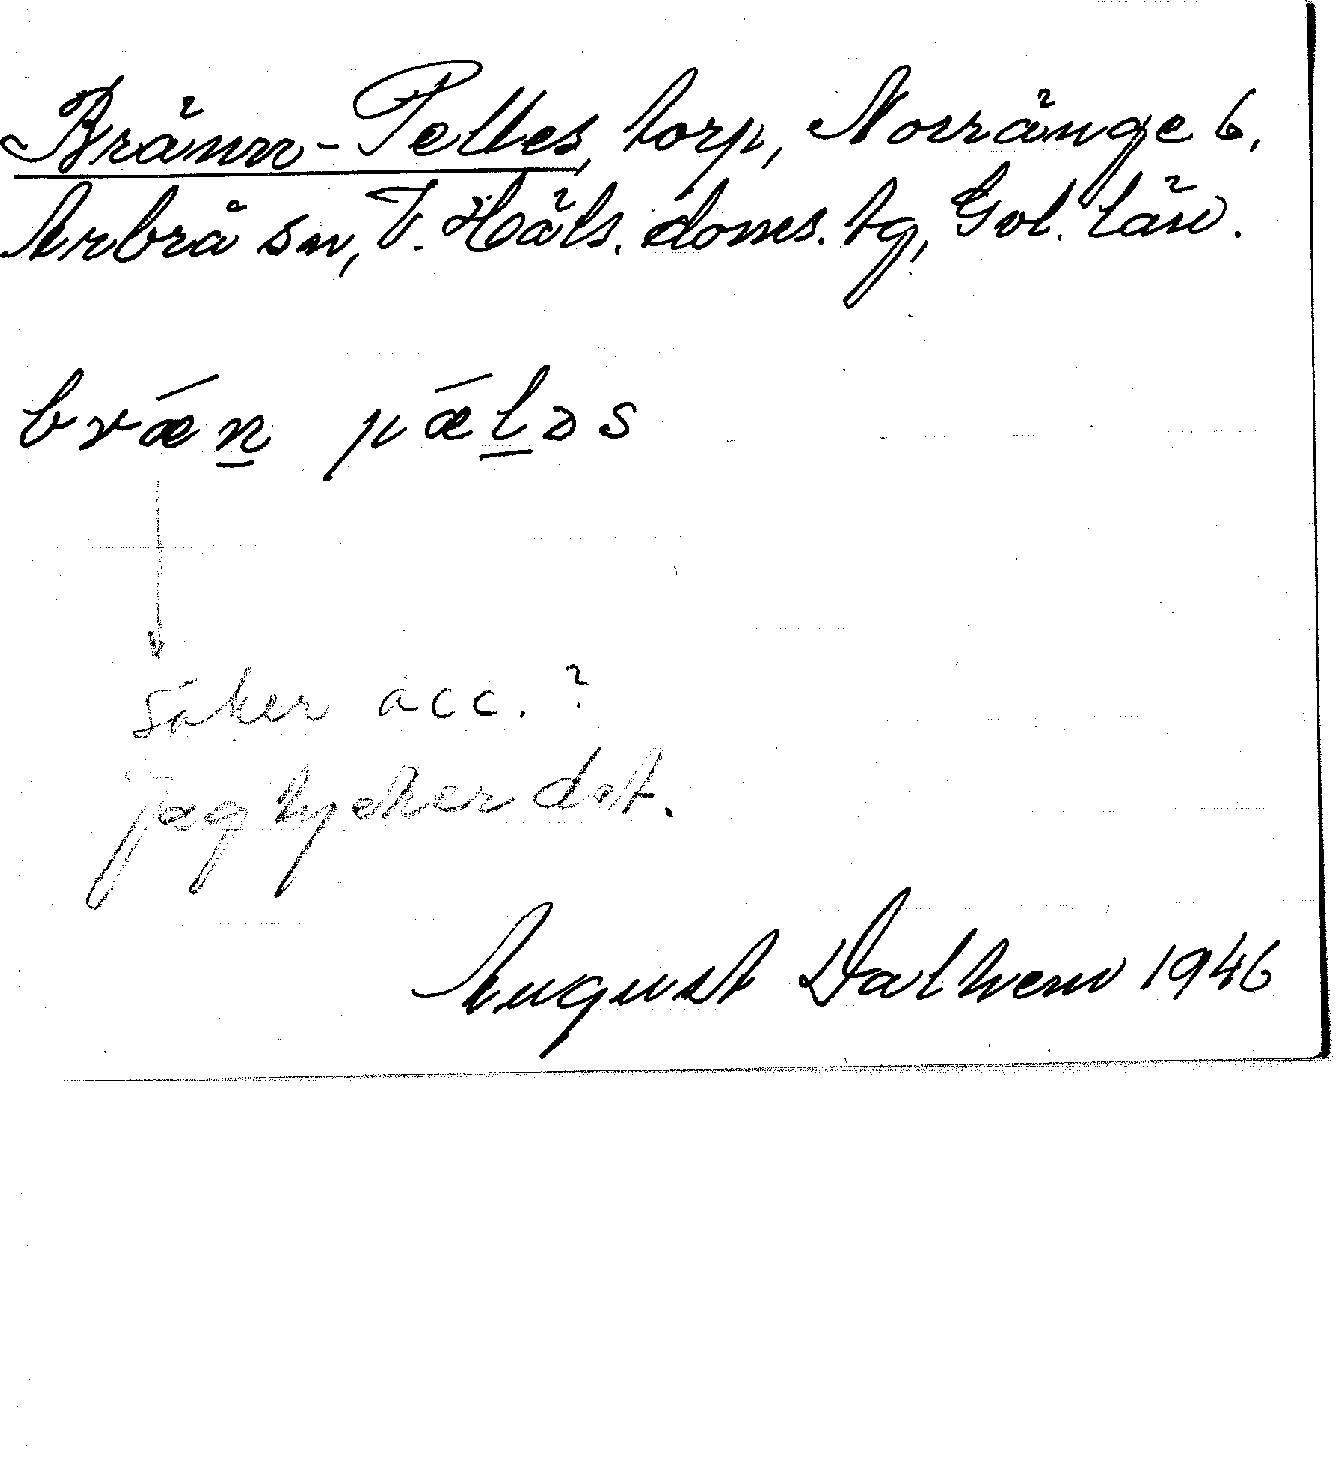 Bränn-Pelles, torp, Norränge 6,
Arbrå sn, V. Häls. doms. tg, Gvl. län.
brǣn pǣləs
säker acc.?
jag tycker det.
August Dalhem 1946